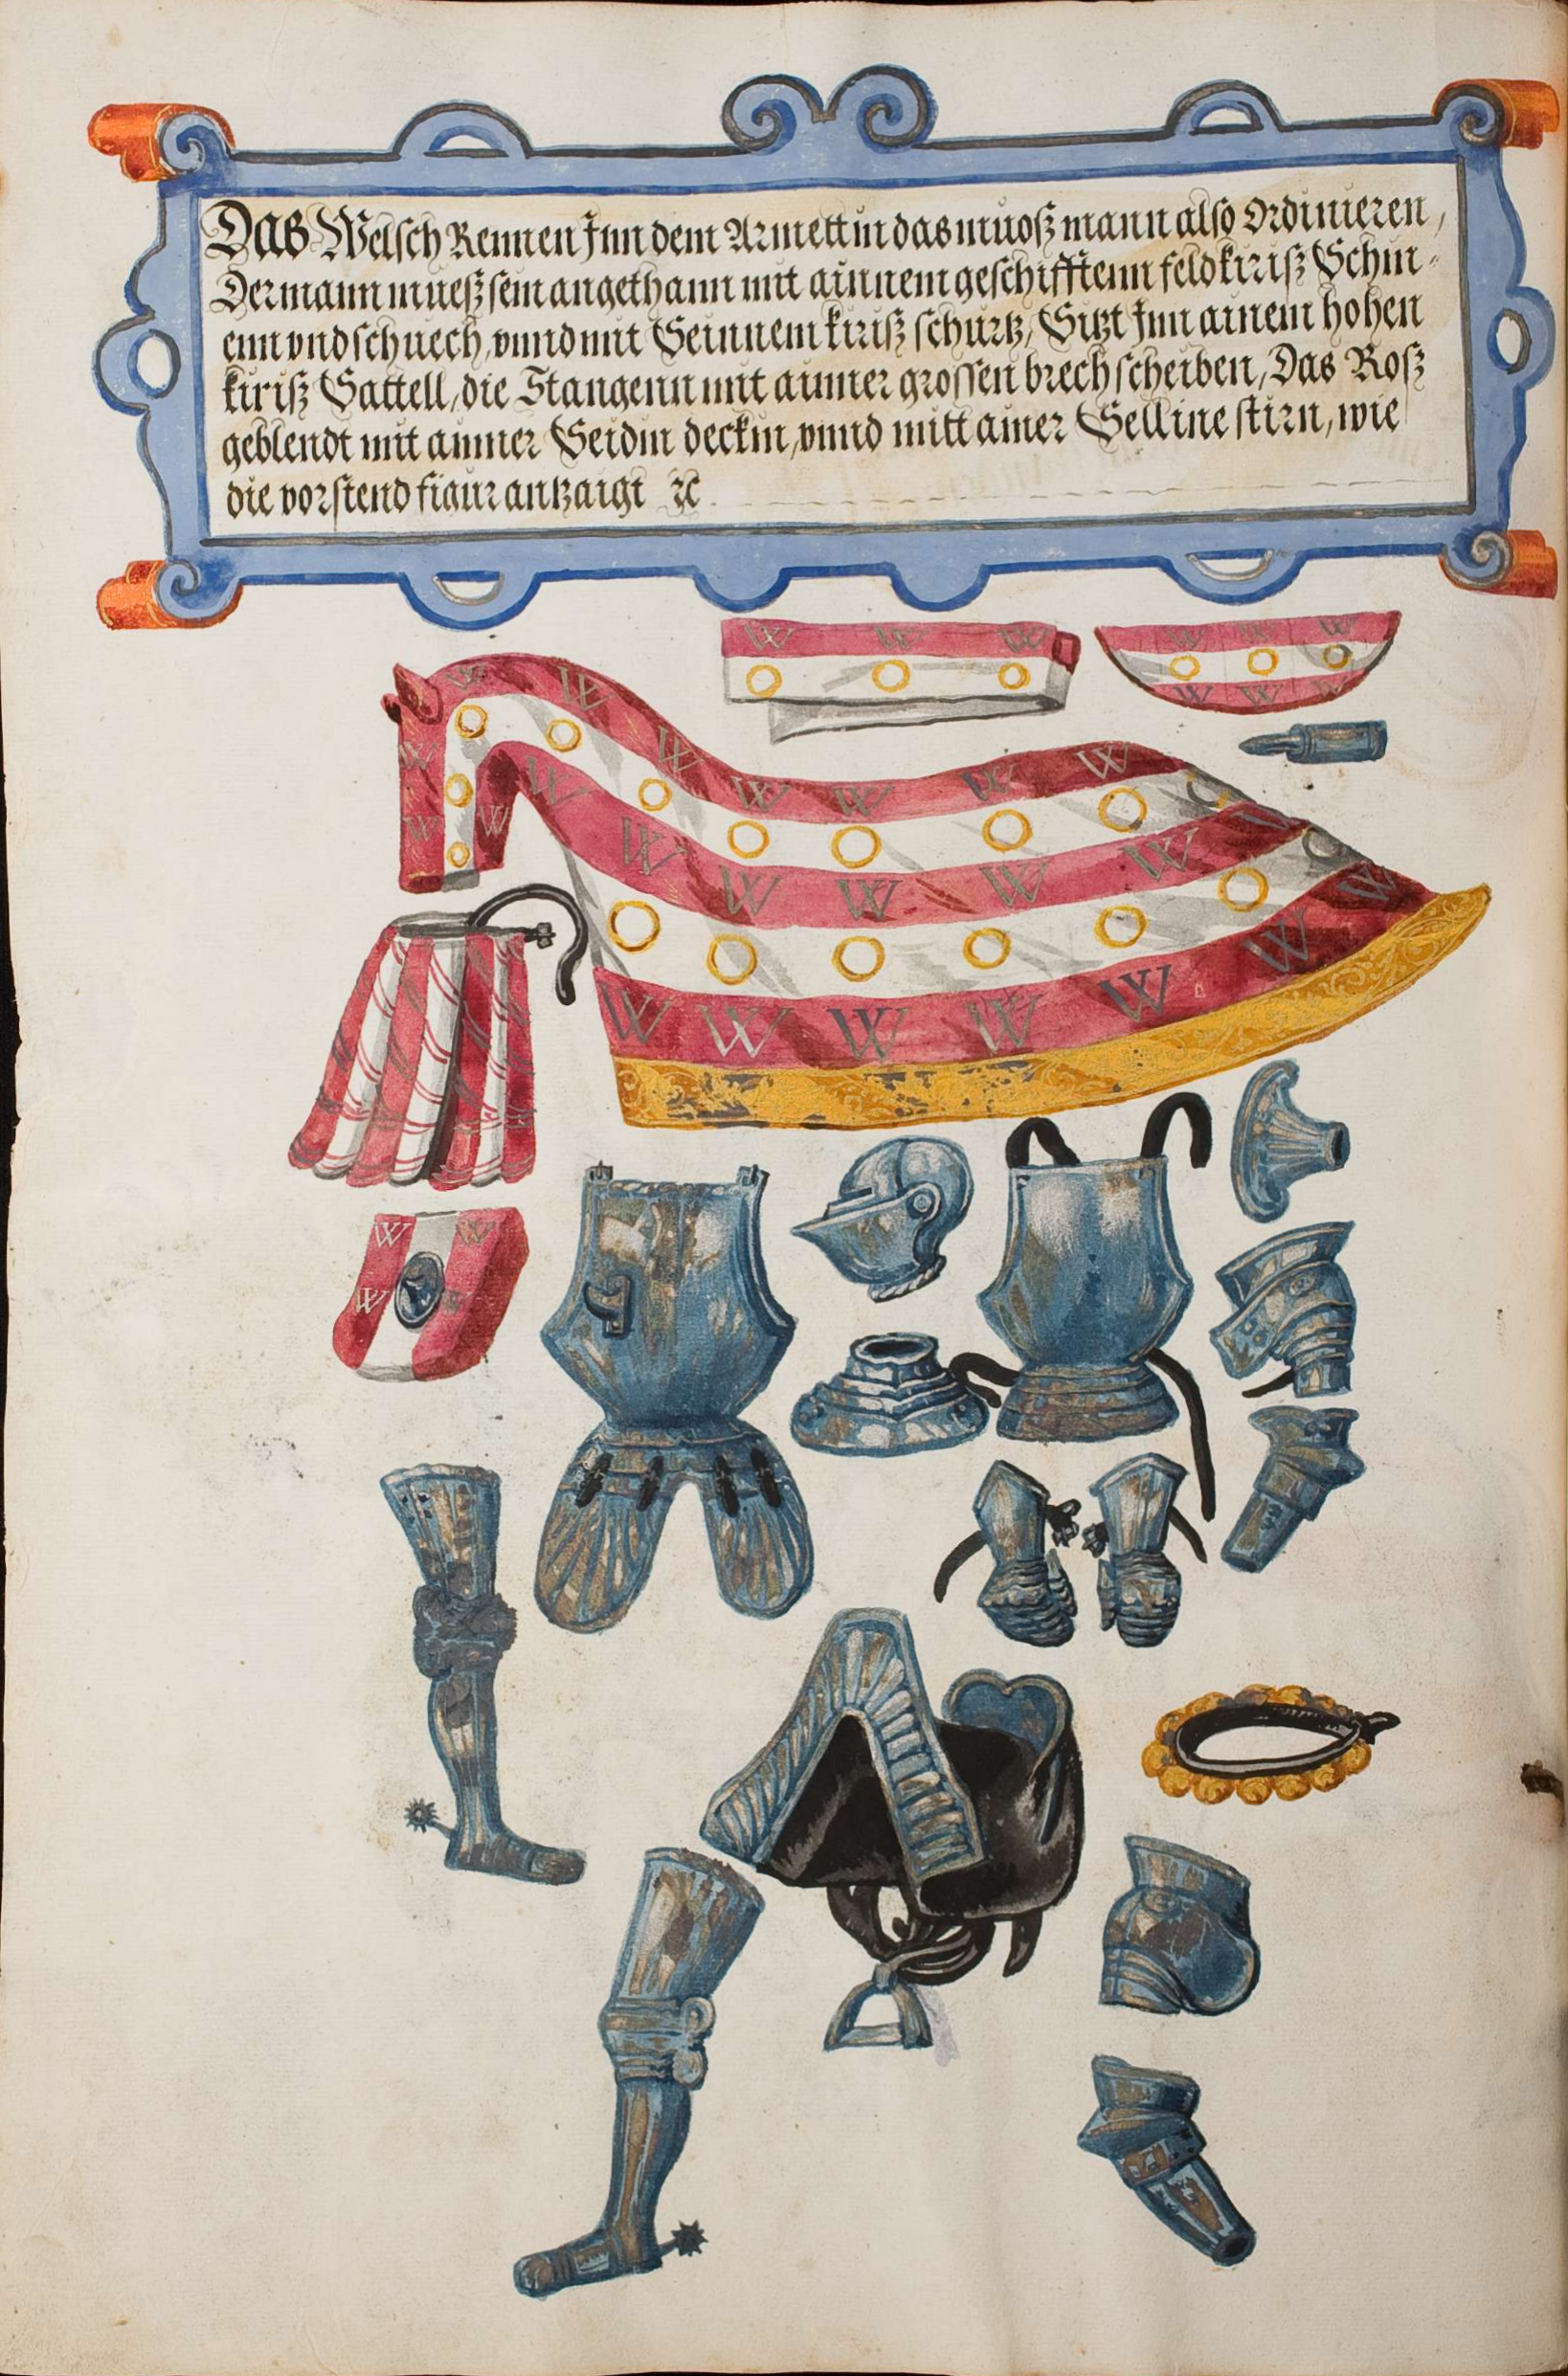 Das Welsch Rennen Jnn dem Armettin das muoß mann also Ordinieren,
Der mann mueß sein angethann mit ainnem geschifftenn feldkiriß Schin-
enn vnd schuech, vnnd mit Seinnem kiriß schurtz, Sitzt Jnn ainem hohen
kiriß Sattell, die Stangenn mit ainner grossen brechscheiben, Das Roß
geblendt mit ainner Seidin deckin, vnnd mitt ainer Selline stirn, wie
die vorstend figur antzaigt ꝛc
W W W W W W
W W W
W W W W W W W
W W W W W W W
W W W W W W W
W W
W